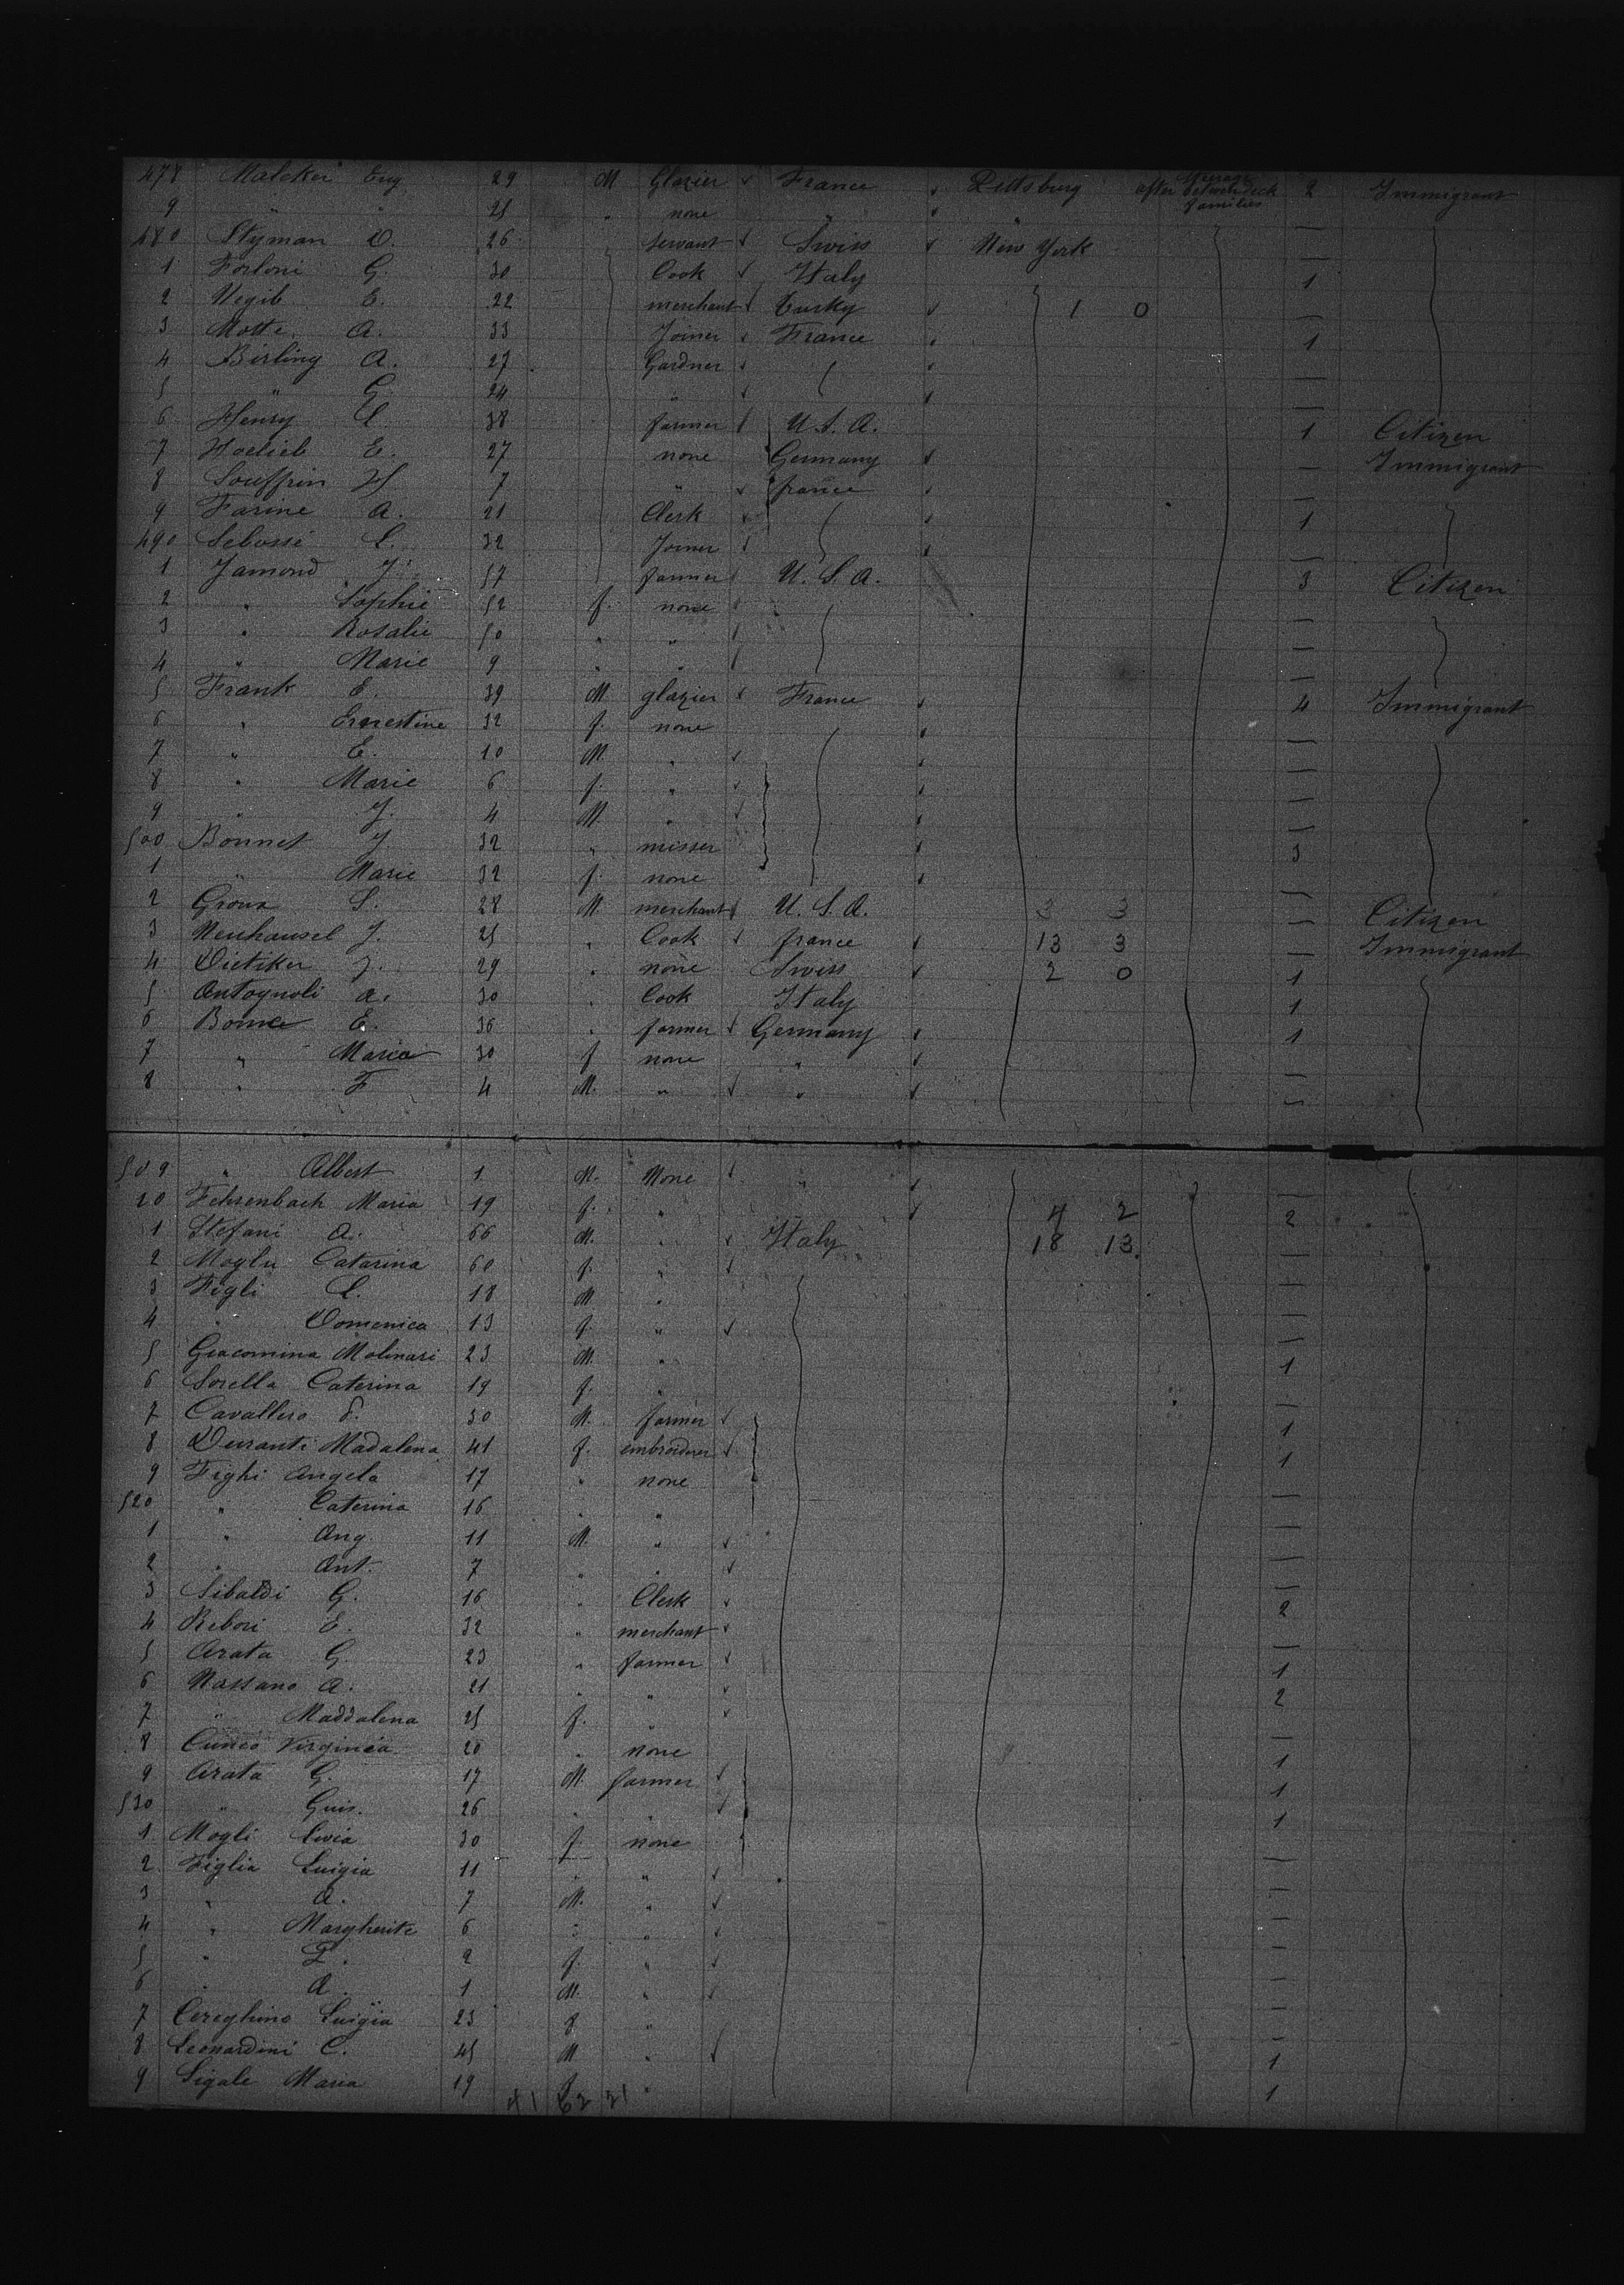 478 Maleker Eug 29 M Glazier France Pittsburg after steerage betweendeck families 2 Immigrant
9 " " 25 " none " "
480 Styman O. 26 servant Swiss New York —
1 Forloni G. 30 Cook Italy 1
2 Negib E. 22 merchant Turky 1 0 —
3 Motte A. 33 Joiner France 1
4 Birling A. 27 Gardner —
5 " G. 24 " —
6 Henry 38 farmer U.S.A. 1 Citizen
7 E. 27 none Germany — Immigrant
8 Souffrin H 7 " france —
9 Farine A. 21 Clerk 1
490 Lebossé 32 Joiner —
1 Jamond J. 57 farmer U.S.A. 3 Citizen
2 " Sophie 52 f. none —
3 " Rosalie 50 " " —
4 " Marie 9 " " —
5 Frank E. 39 M glazier France 4 Immigrant
6 " Ernestine 32 f. none —
7 " E. 10 M. " —
8 " Marie 6 f. " —
9 " J. 4 M. " —
500 Bonnet J 32 " misser 3
1 " Marie 32 f. none —
2 Groux S. 28 M merchant U.S.A. 3 3 — Citizen
3 Neuhausel J. 25 " Cook france 13 3 — Immigrant
4 Dietiker J. 29 " none Swiss 2 0 1
5 Antognoli A. 30 " Cook Italy 1
6 E. 36 " farmer Germany 1
7 " Maria 30 f none " —
8 " F 4 M. " " —
509 " Albert 1 M. None " —
10 Fehrenbach Maria 19 f. " 4 2 2
1 Stefani A. 66 M. " Italy 18 13 —
2 Moglu Catarina 60 f. " —
3 Figli 18 M " —
4 " Domenica 13 f. " —
5 Giacomina Molinari 23 M. " 1
6 Sorella Caterina 19 f. " —
7 Cavallero 30 M. farmer 1
8 Duranti Madalena 41 f. embroiderer 1
9 Fighi Angela 17 " none —
520 " Caterina 16 " " —
1 " Ang. 11 M. " —
2 " Ant. 7 " " —
3 Sibaldi G. 16 " Clerk 2
4 Rebori E. 32 " merchant —
5 Arata G. 23 " farmer 1
6 Nassano A. 21 " " 2
7 " Maddalena 25 f. " —
8 Cuneo Virginia 20 " none 1
9 Arata G. 17 M. farmer 1
530 " Guis. 26 " " 1
1 Mogli Livia 30 f. none —
2 Figlia Luigia 11 " " —
3 " A. 7 M. " —
4 " Margherite 6 " " —
5 " 2 f. " —
6 " A. 1 M. " —
7 Cereghino Luigia 23 f " —
8 Leonardini C. 45 M " 1
9 Sigale Maria 19 f " 1
41 62 21